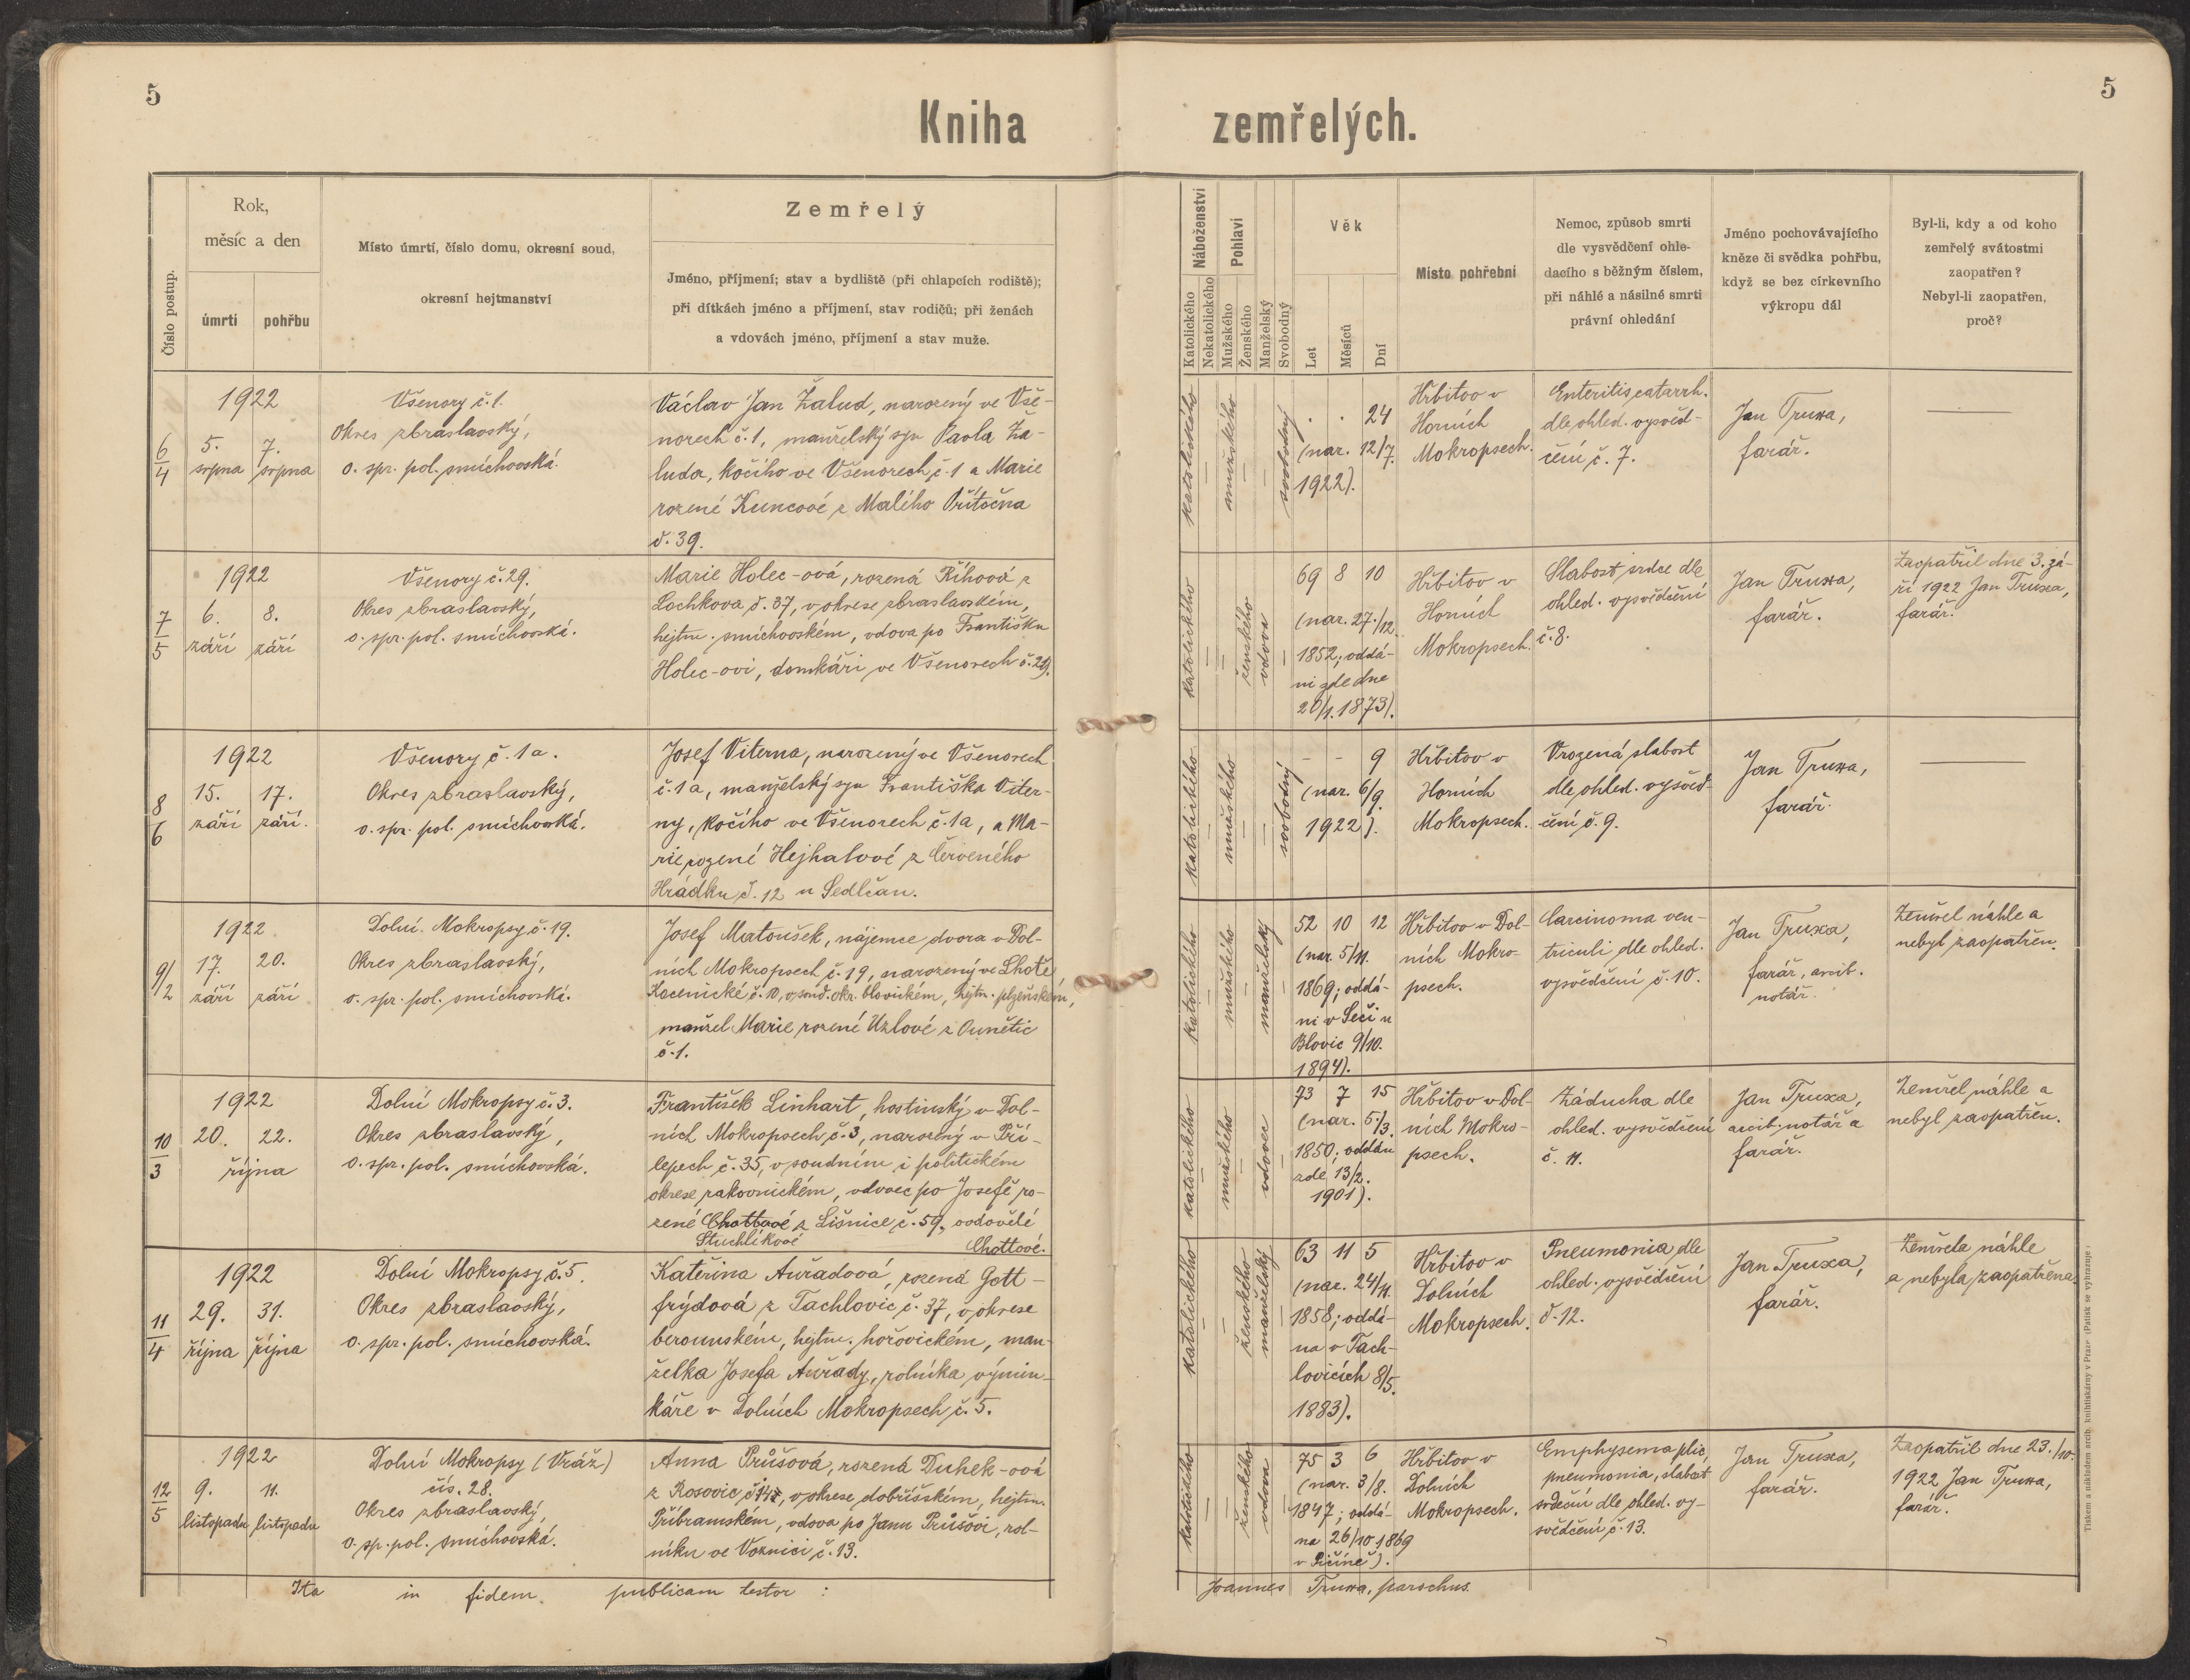 5
Kniha zemřelých.
5
Číslo postup.
Rok,
měsíc a den
úmrtí
pohřbu
Místo úmrtí, číslo domu, okresní soud,
okresní hejtmanství
Zemřelý
Jméno, příjmení; stav a bydliště (při chlapcích rodiště);
při dítkách jméno a příjmení, stav rodičů; při ženách
a vdovách jméno, příjmení a stav muže.
Náboženství
Katolického
Nekatolického
Pohlaví
Mužského
Ženského
Manželský
Svobodný
Věk
Let
Měsíců
Dní
Místo pohřební
Nemoc, způsob smrti
dle vysvědčení ohle-
dacího s běžným číslem,
při náhlé a násilné smrti
právní ohledání
Jméno pochovávajícího
kněze či svědka pohřbu,
když se bez církevního
výkropu dál
Byl-li, kdy a od koho
zemřelý svátostmi
zaopatřen?
Nebyl-li zaopatřen,
proč?
6/4
1922
5. srpna
7. srpna
Všenory č. 1.
Okres zbraslavský,
o. spr. pol. smíchovská.
Václav Jan Žalud, narozený ve Vše-
norech č. 1, manželský syn Pavla Ža-
luda, kočího ve Všenorech č. 1 a Marie
rozené Kuncové z Malého Přítočna
č. 39.
katolického
mužského
svobodný
. . 24
(nar. 12/7.
1922).
Hřbitov v
Horních
Mokropsech.
Enteritis catarrh.
dle ohled. vysvěd-
čení č. 7.
Jan Truxa,
farář.
7/5
1922
6. září
8. září
Všenory č. 29.
Okres zbraslavský,
o. spr. pol. smíchovská.
Marie Holec-ová, rozená Říhová z
Lochkova č. 37, v okrese zbraslavském,
hejtm. smíchovském, vdova po Františku
Holec-ovi, domkáři ve Všenorech č. 29.
katolického
ženského
vdova
69 8 10
(nar. 27./12.
1852; oddá-
ni zde dne
20/1. 1873).
Hřbitov v
Horních
Mokropsech.
Slabost srdce dle
ohled. vysvědčení
č. 8.
Jan Truxa,
farář.
Zaopatřil dne 3. zá-
ří 1922 Jan Truxa,
farář.
8/6
1922
15. září
17. září.
Všenory č. 1a.
Okres zbraslavský,
o. spr. pol. smíchovská.
Josef Viterna, narozený ve Všenorech
č. 1a, manželský syn Františka Viter-
ny, kočího ve Všenorech č. 1a, a Ma-
rie rozené Hejhalové z Červeného
Hrádku č. 12 u Sedlčan.
katolického
mužského
svobodný
- - 9
(nar. 6/9.
1922).
Hřbitov v
Horních
Mokropsech.
Vrozená slabost
dle ohled. vysvěd-
čení č. 9.
Jan Truxa,
farář.
9/2
1922
17. září
20. září
Dolní Mokropsy č. 19.
Okres zbraslavský,
o. spr. pol. smíchovská.
Josef Matoušek, nájemce dvora v Dol-
ních Mokropsech č. 19, narozený ve Lhotě
Kocenické č. 10, v soud. okr. blovickém, hejtm. plzeňském,
manžel Marie rozené Uzlové z Ounětic
č. 1.
katolického
mužského
manželský
52 10 12
(nar. 5/11.
1869; oddá-
ni v Seči u
Blovic 9/10.
1894).
Hřbitov v Dol-
ních Mokro-
psech.
Carcinoma ven-
triculi dle ohled.
vysvědčení č. 10.
Jan Truxa,
farář, arcib.
notář.
Zemřel náhle a
nebyl zaopatřen.
10/3
1922
20. 22.
října
Dolní Mokropsy č. 3.
Okres zbraslavský,
o. spr. pol. smíchovská.
František Linhart, hostinský v Dol-
ních Mokropsech č. 3, narozený v Pří-
lepech č. 35, v soudním i politickém
okrese rakovnickém, vdovec po Josefě ro-
zené Chottové z Líšnice č. 59, ovdovělé
Stuchlíkové Chottové.
katolického
mužského
vdovec
73 7 15
(nar. 5/3.
1850; oddán
zde 13/2.
1901).
Hřbitov v Dol-
ních Mokro-
psech.
Záducha dle
ohled. vysvědčení
č. 11.
Jan Truxa,
arcib. notář a
farář.
Zemřel náhle a
nebyl zaopatřen.
11/4
1922
29. října
31. října
Dolní Mokropsy č. 5.
Okres zbraslavský,
o. spr. pol. smíchovská.
Kateřina Auřadová, rozená Gott-
frýdová z Tachlovic č. 37, v okrese
berounském, hejtm. hořovickém, man-
želka Josefa Auřady, rolníka výmin-
káře v Dolních Mokropsech č. 5.
katolického
ženského
manželský
63 11 5
(nar. 24/11.
1858; oddá-
na v Tach-
lovicích 8/5.
1883).
Hřbitov v
Dolních
Mokropsech.
Pneumonia dle
ohled. vysvědčení
č. 12.
Jan Truxa,
farář.
Zemřela náhle
a nebyla zaopatřena.
12/5
1922
9. listopadu
11. listopadu
Dolní Mokropsy (Vráž)
čís. 28.
Okres zbraslavský,
o. sp. pol. smíchovská.
Anna Průšová, rozená Duhek-ová
z Rosovic, v okrese dobříšském, hejtm.
Příbramském, vdova po Janu Průšovi, rol-
níku ve Voznici č. 13.
katolického
ženského
vdova
75 3 6
(nar. 3/8.
1847; oddá-
na 26/10 1869
v Pičíně).
Hřbitov v
Dolních
Mokropsech.
Emphysema plic,
pneumonia, slabost
srdeční dle ohled. vy-
svědčení č. 13.
Jan Truxa,
farář.
Zaopatřil dne 23./10.
1922 Jan Truxa,
farář.
Ita in fidem publicam testor :
Joannes Truxa, parochus.
Tiskem a nákladem arcib. knihtiskárny v Praze (Patisk se vyhrazuje)